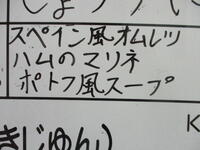 スペイン風オムレツ
ハムのマリネ
ポトフ風スープ
きじゅん)
K